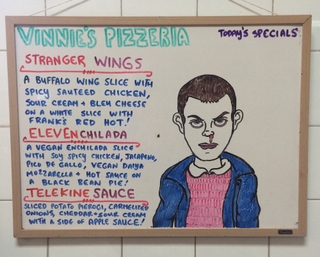 VINNIE'S PIZZERIA
TODAY'S SPECIALS
STRANGER WINGS
A BUFFALO WING SLICE WITH
SPICY SAUTEED CHICKEN,
SOUR CREAM + BLEU CHEESE
ON A WHITE SLICE WITH
FRANK'S RED HOT!
ELEVENCHILADA
A VEGAN ENCHILADA SLICE
WITH SOY SPICY CHICKEN, JALAPENO,
PICO DE GALLO, VEGAN DAIYA
MOZZARELLA + HOT SAUCE ON
A BLACK BEAN PIE!
TELEKINESAUCE
SLICED POTATO PIEROGI, CARMELIZED
ONIONS, CHEDDAR + SOUR CREAM
WITH A SIDE OF APPLE SAUCE!